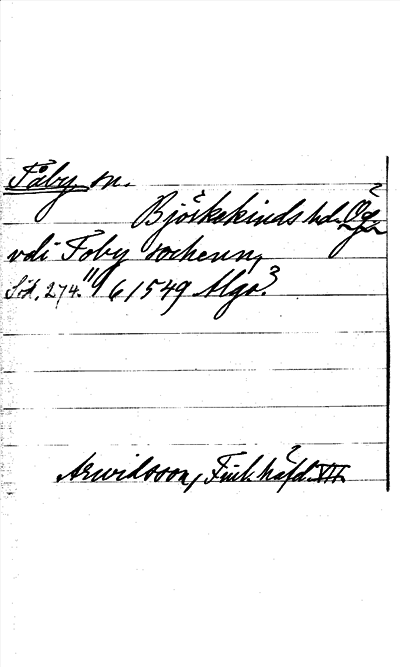 Tåby sn.
Björkekinds hd. Ög.
vdi Toby sochenn,
Sid. 274. 11/6 1549 Algo?
Arwidsson, Finl. häfd. VII.